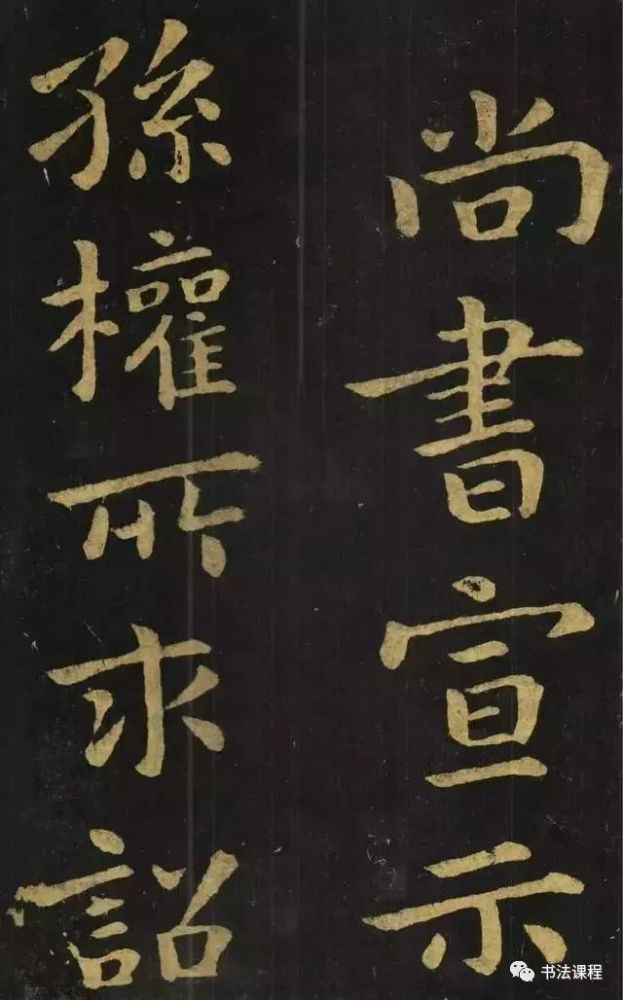 尚書宣示
孫權所求詔
书法课程